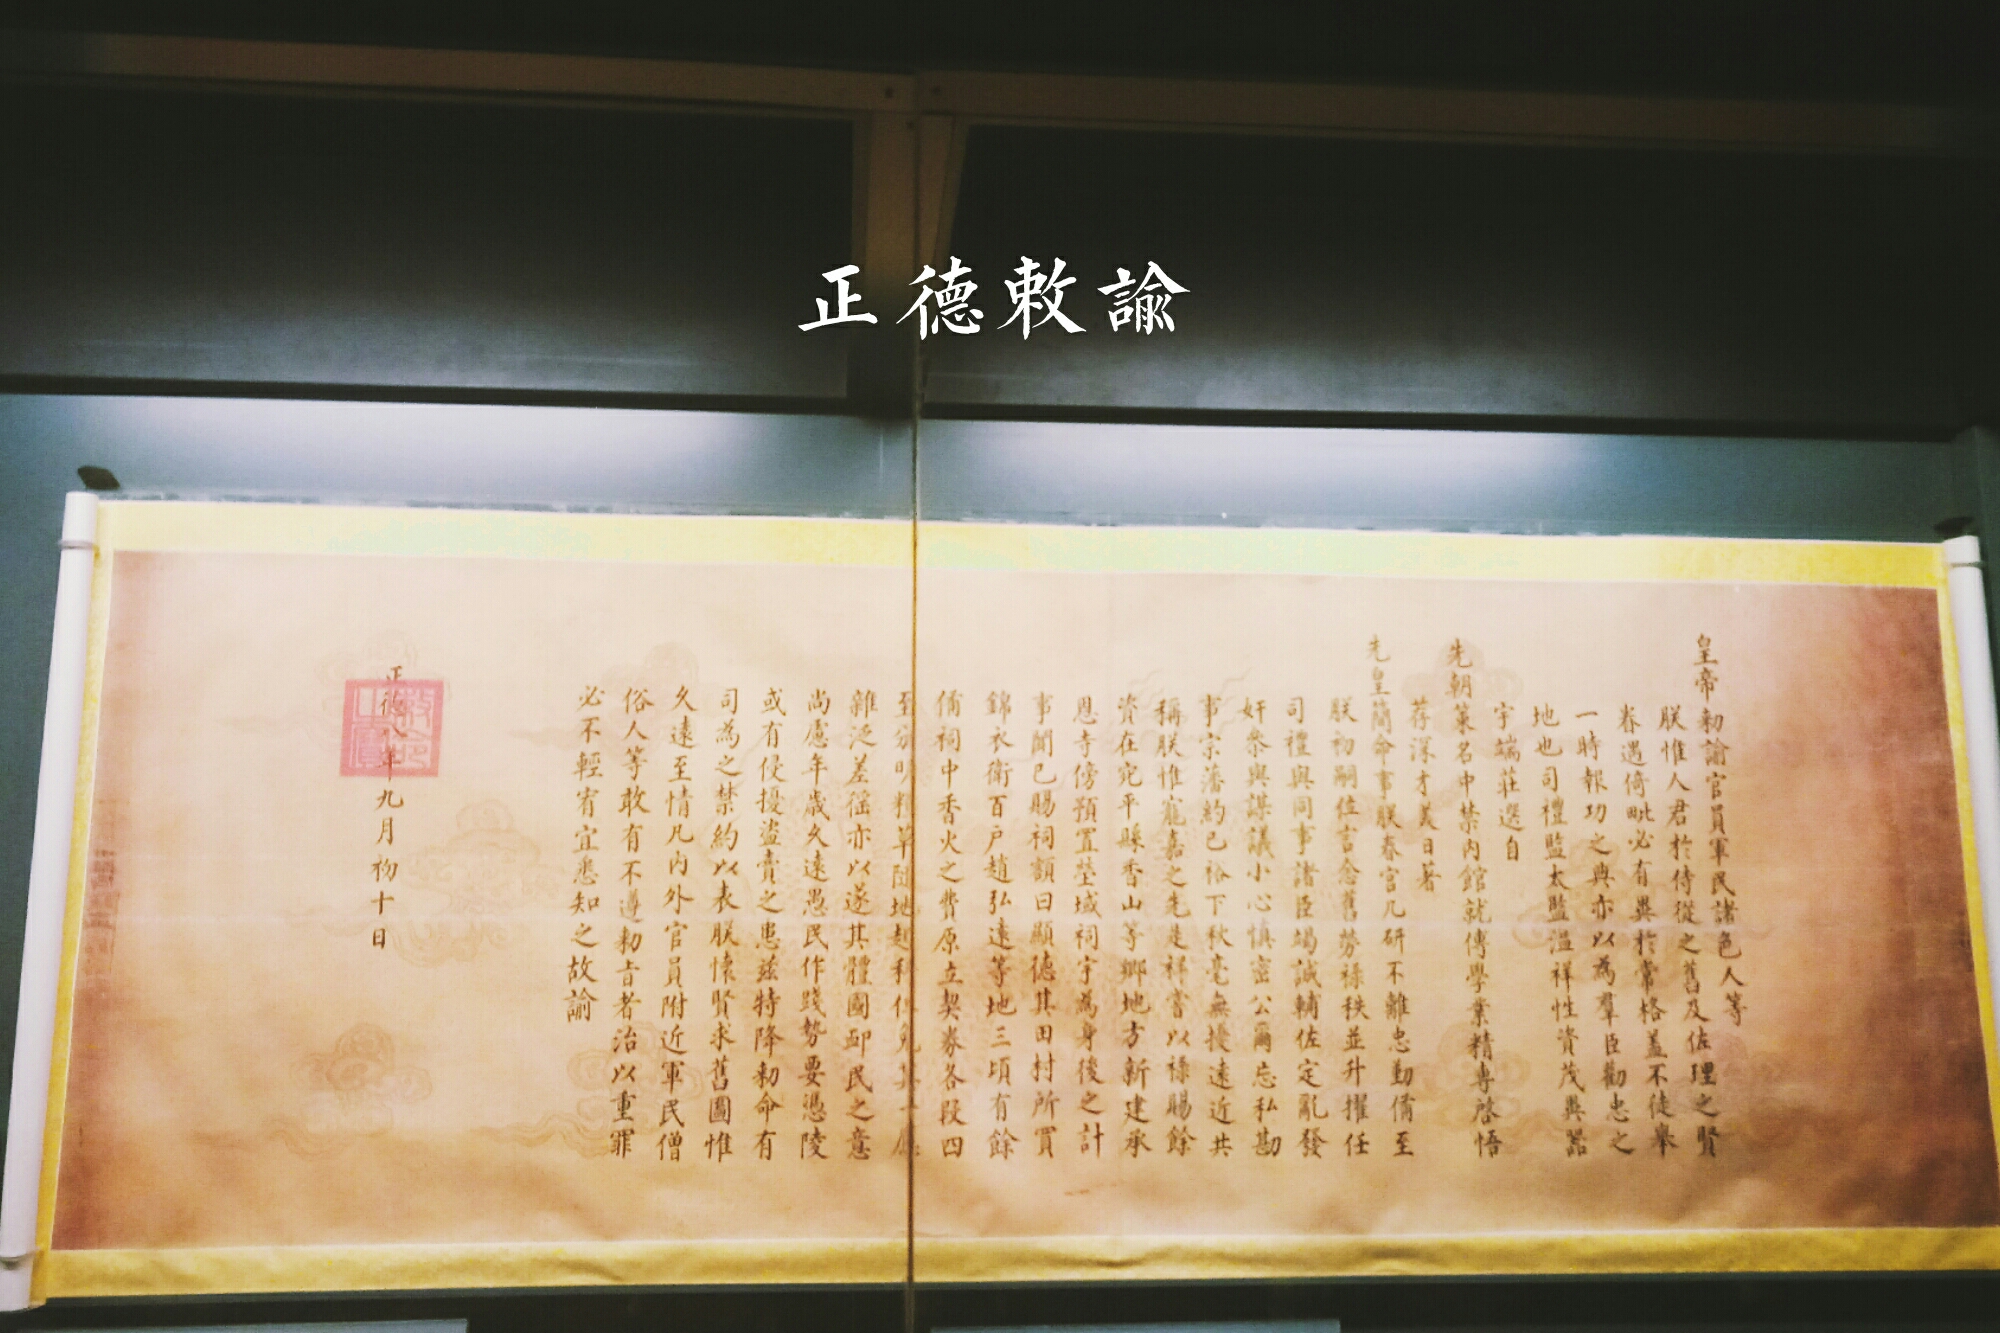 正德敕諭
皇帝勑諭官員軍民諸色人等
朕惟人君於侍從之舊及佐理之賢
眷遇倚毗必有異於常格蓋不徒舉
一時報功之典亦以為羣臣勸忠之
地也司禮監太監溫祥性資茂異器
宇端莊選自
先朝策名中禁內館就傅學業精專啓悟
荐深才美日著
先皇簡命事朕春宮凡研不離忠勤俻至
朕初嗣位言念舊勞祿秩並升擢任
司禮與同事諸臣竭誠輔佐定亂發
奸叅與謀議小心慎密公爾忘私勘
事宗藩約已裕下秋毫無擾遠近共
稱朕惟寵嘉之先是祥嘗以祿賜餘
資在宛平縣香山等鄉地方新建承
恩寺傍預置塋域祠宇為身後之計
事聞已賜祠額曰顯德其田村所買
錦衣衛百户趙弘達等地三頃有餘
俻祠中香火之費原立契券各段四
至分明糧草隨地起科
雜泛差徭亦以遂其體國卹民之意
尚慮年歲久遠愚民作踐勢要憑陵
或有侵擾盜賣之患兹特降勑命有
司為之禁約以表朕懷賢求舊圖惟
久遠至情凡內外官員附近軍民僧
俗人等敢有不遵勑旨者治以重罪
必不輕宥宜悉知之故諭
正德八年九月初十日